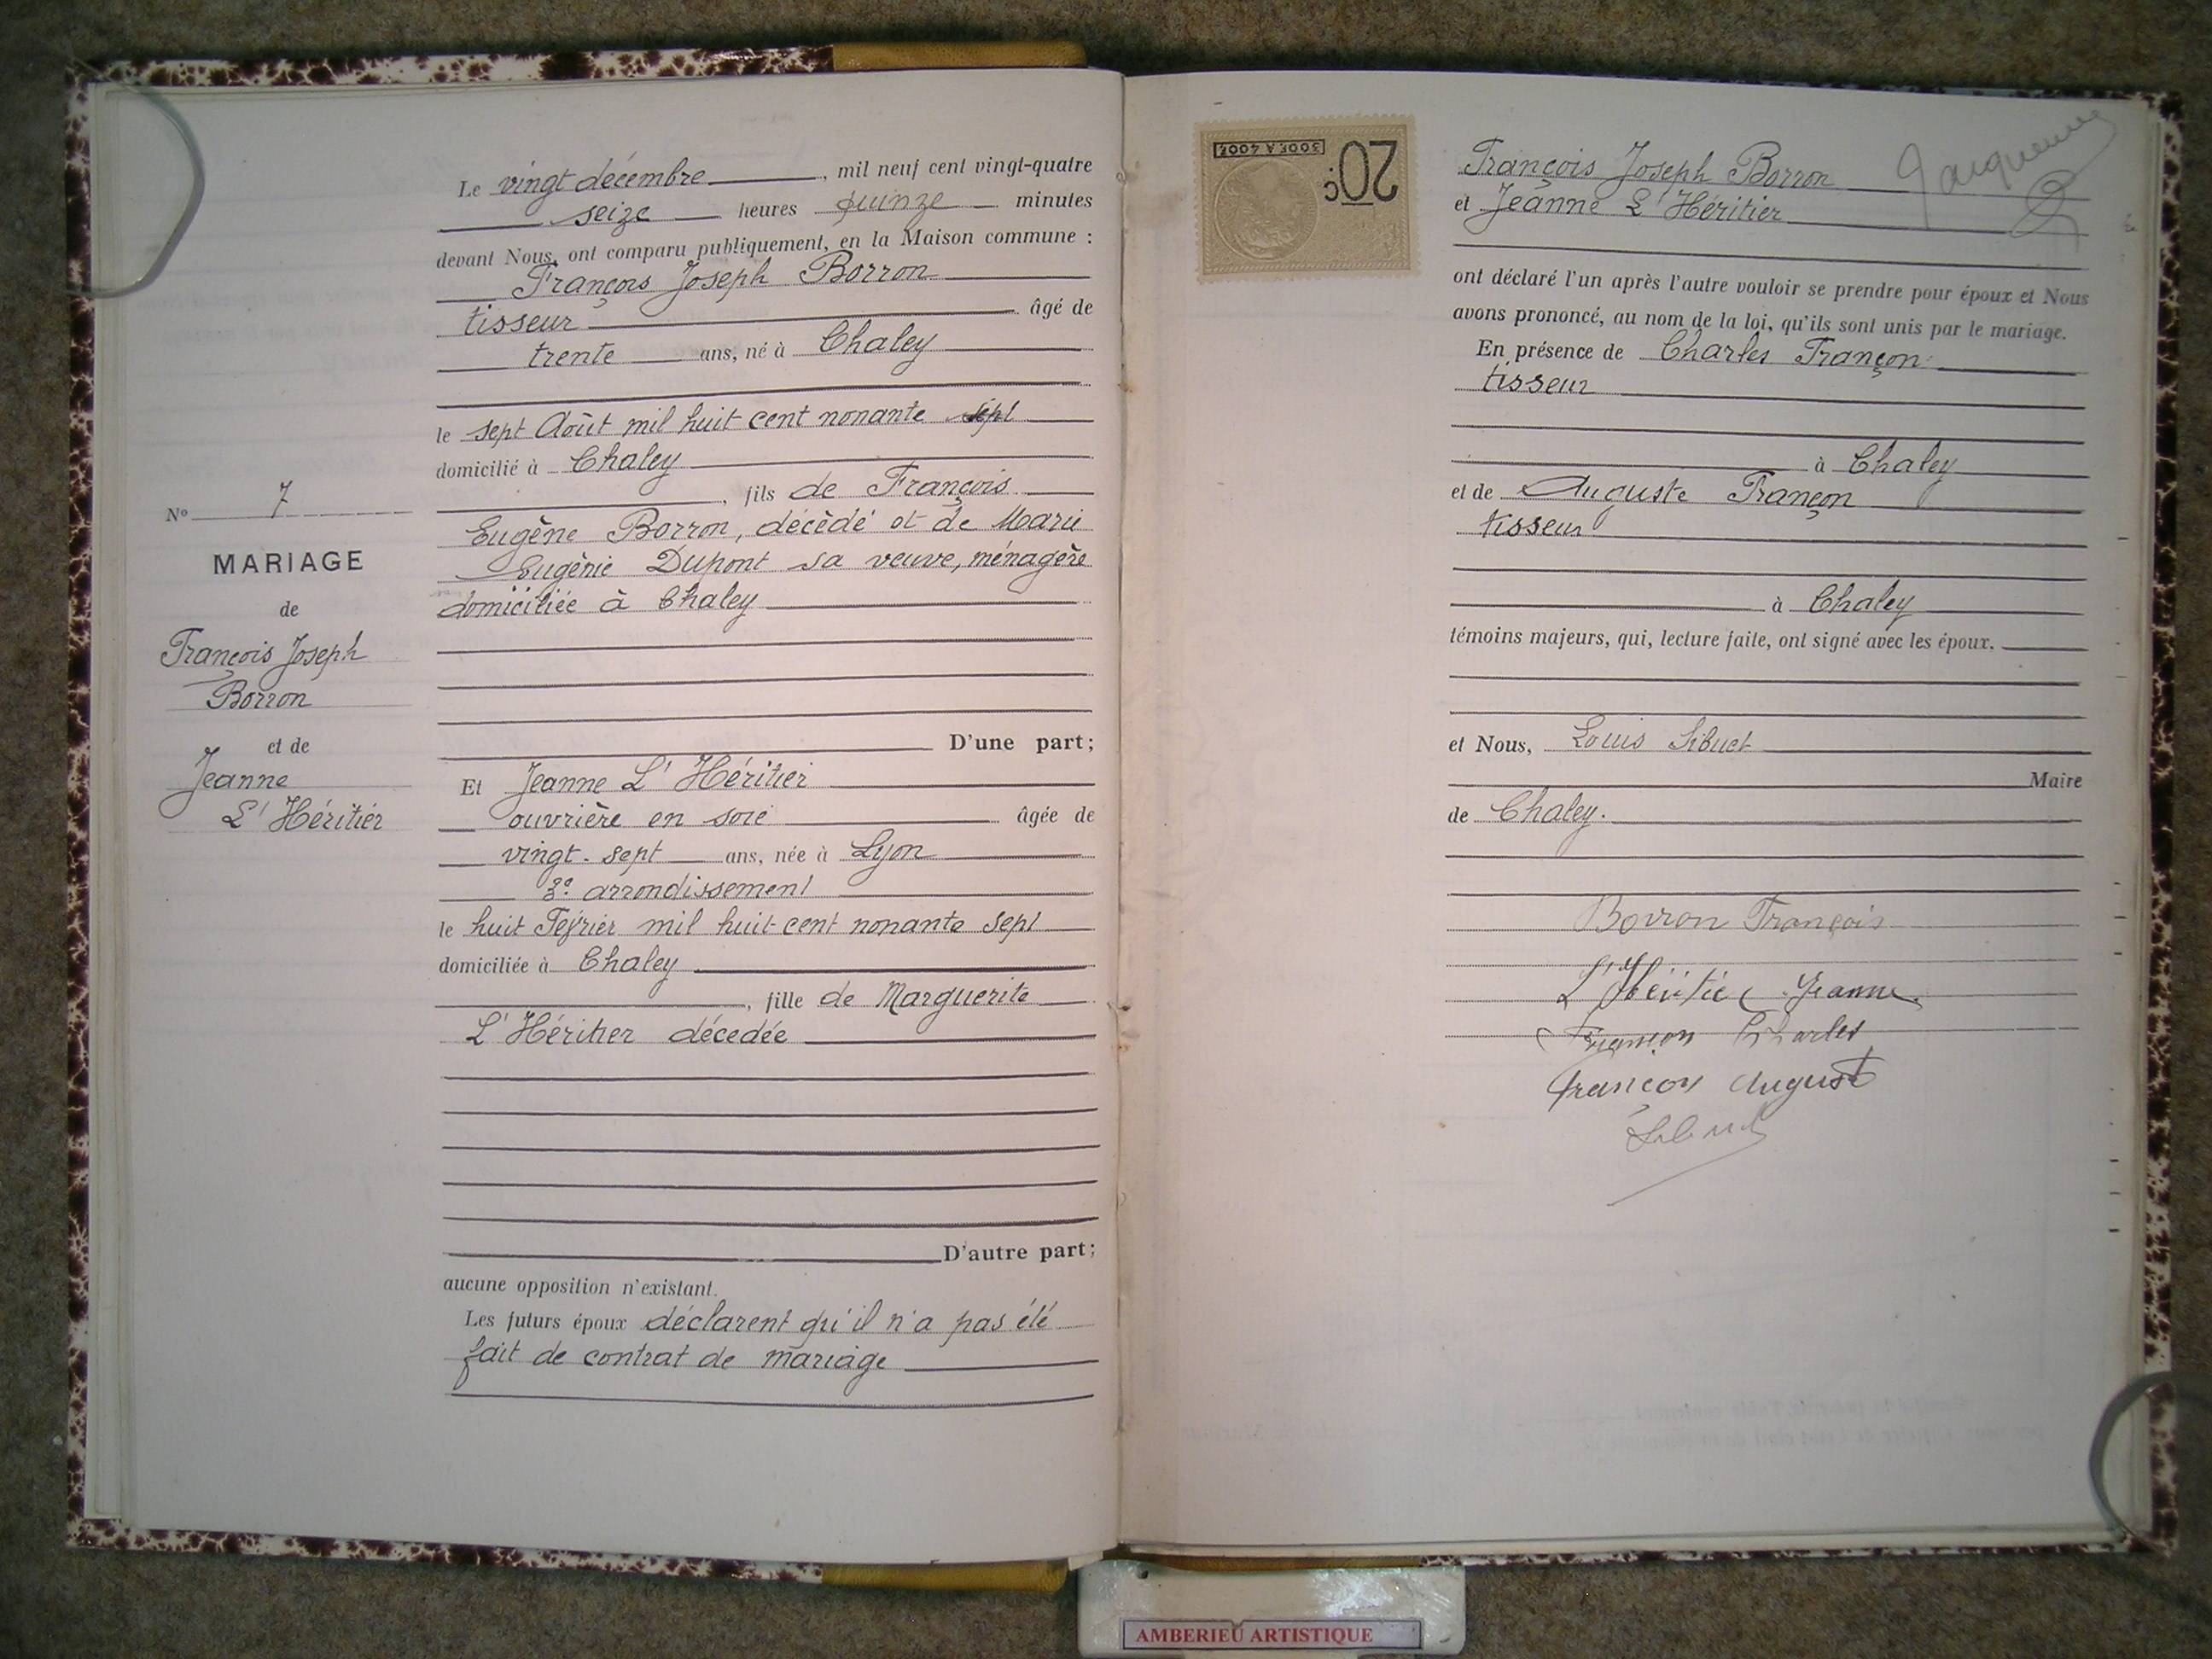 Le vingt décembre, mil neuf cent vingt-quatre
seize heures quinze minutes
devant Nous, ont comparu publiquement, en la Maison commune :
François Joseph Borron
tisseur âgé de
trente ans, né à Chaley
le sept Août mil huit cent nonante
domicilié à Chaley
, fils de François
Eugène Borron, décédé et de Marie
Eugènie Dupont sa veuve, ménagère
domiciliée à Chaley
D'une part;
Et Jeanne L'Héritier
ouvrière en soie âgée de
vingt-sept ans, née à Lyon
arrondissement
le huit Février mil huit-cent nonante sept
domiciliée à Chaley
, fille de Marguerite
L'Héritier décedée
D'autre part;
aucune opposition n'existant.
Les futurs époux déclarent qu'il n'a pas été
fait de contrat de mariage
No 7
MARIAGE
de
François Joseph
Borron
et de
Jeanne
L'Héritier
20c
300F. A 400F.
François Joseph Borron
et Jeanne L'Héritier
ont déclaré l'un après l'autre vouloir se prendre pour époux et Nous
avons prononcé, au nom de la loi, qu'ils sont unis par le mariage.
En présence de Charles Françon
tisseur
à Chaley
et de Auguste Françon
tisseur
à Chaley
témoins majeurs, qui, lecture faite, ont signé avec les époux.
et Nous, Louis Sibuet
Maire
de Chaley.
Borron François
L'Héritier Jeanne
Françon Charles
françon August
Sibuet
AMBERIEU ARTISTIQUE